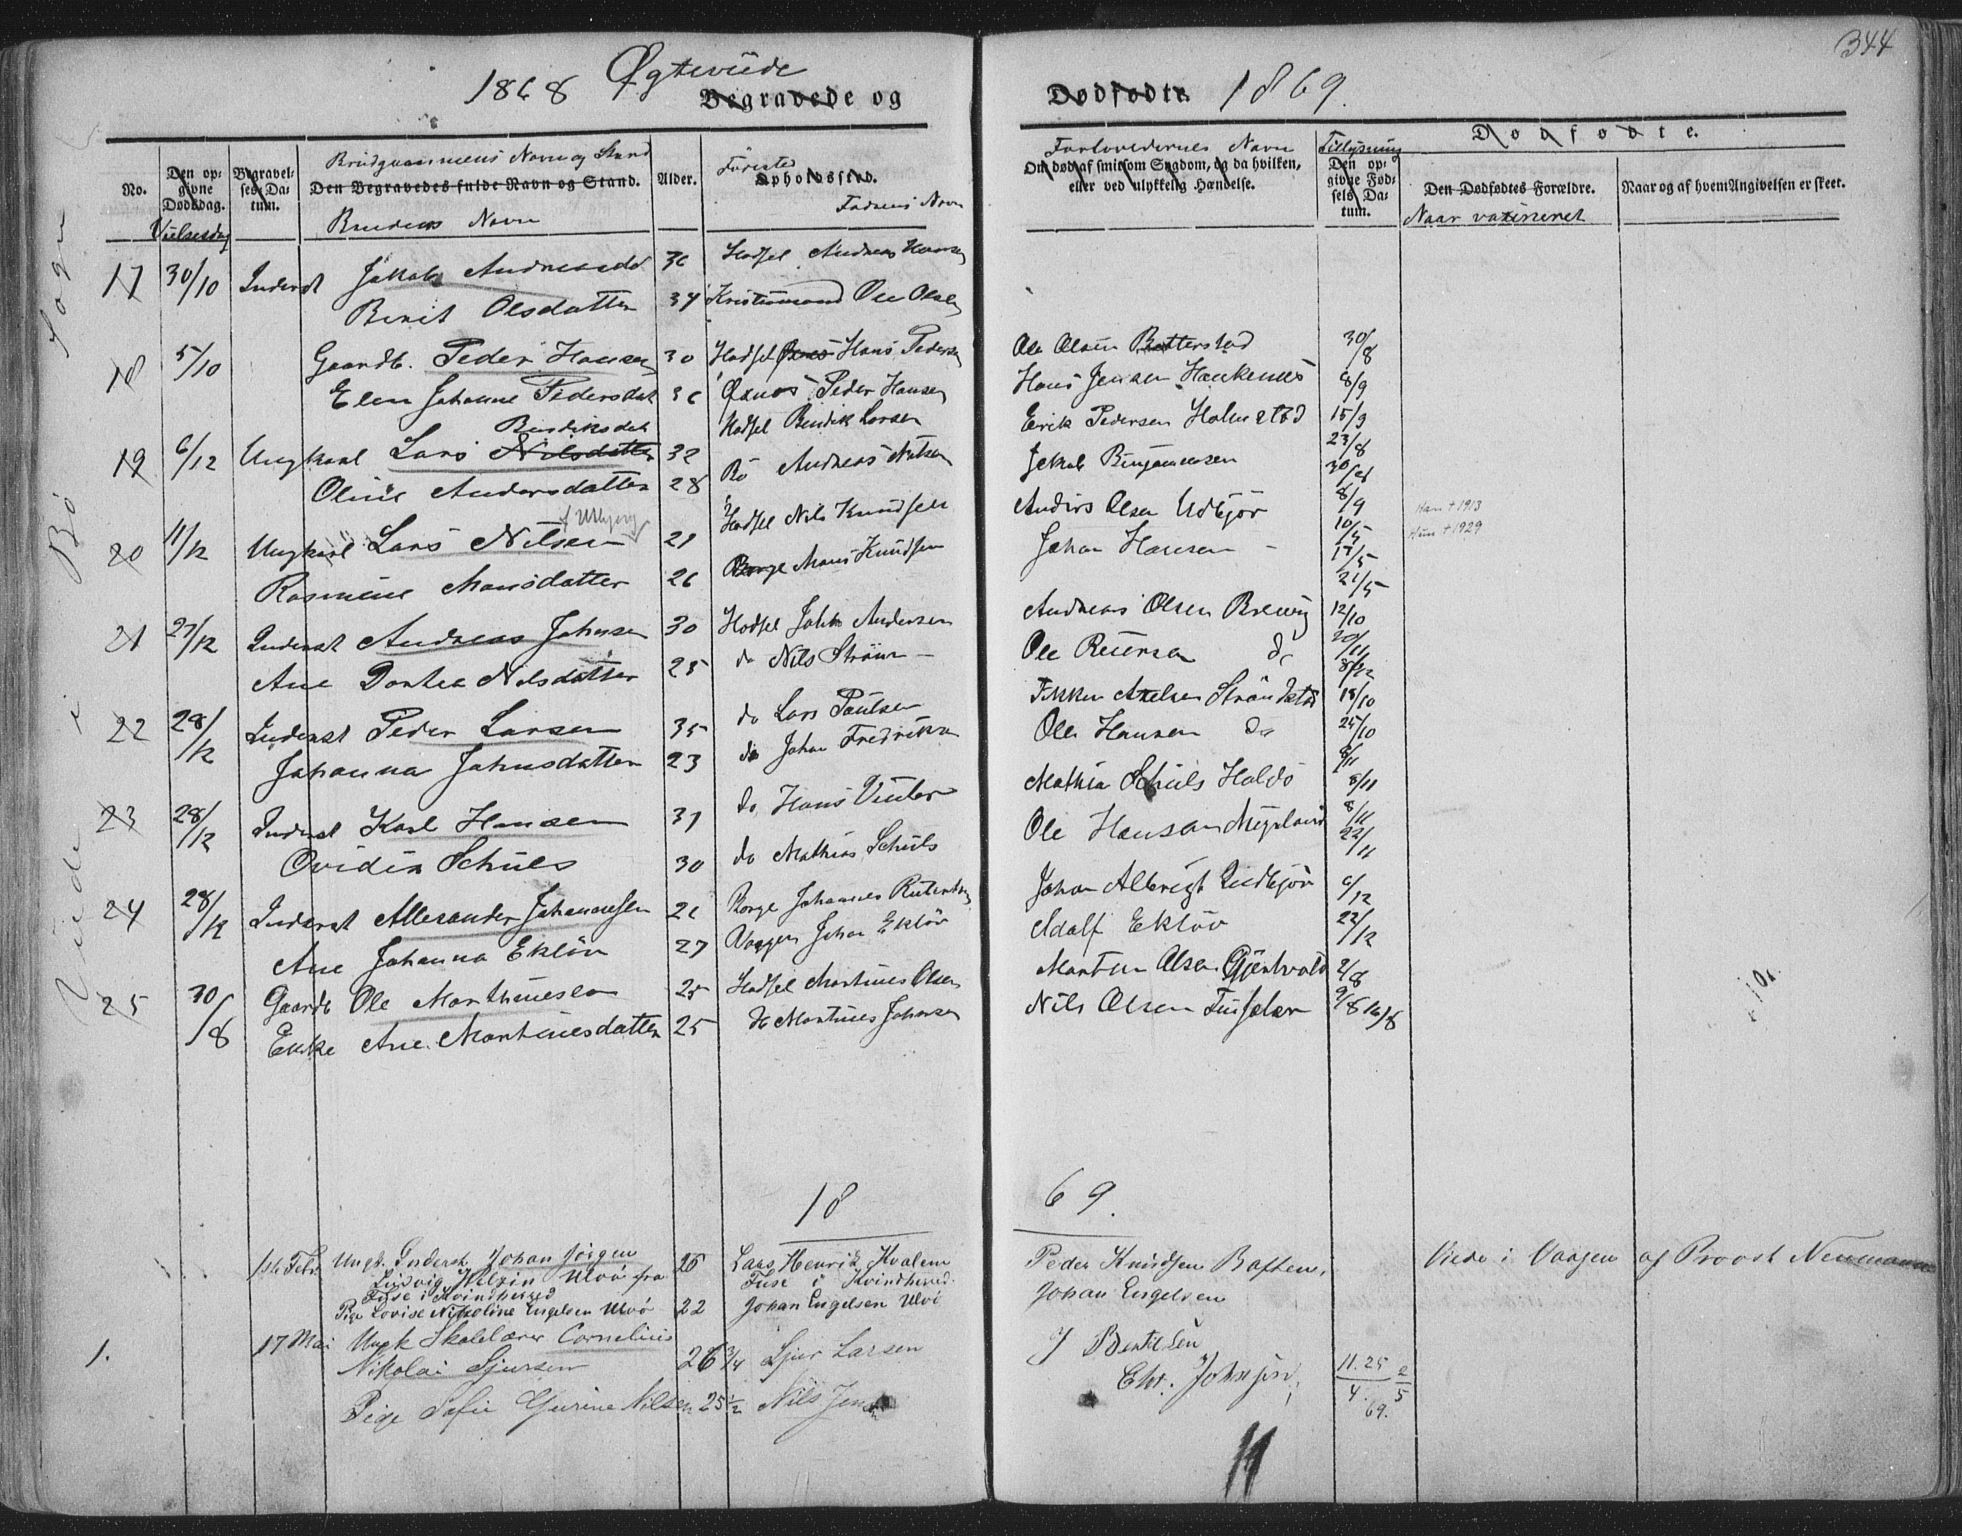 344
1868 Ægteviede 1869.
Begravede og Dødfødte.
No.
Den opgivne Dødsdag.
Vielsesdag
Begravelses-Datum.
Brudgommens Navn og Stand
Den Begravedes fulde Navn og Stand.
Brudens Navn
Alder.
Fødested
Opholdssted.
Faderens Navn
Forlovedernes Navn
Om død af smitsom Sygdom, og da hvilken, eller ved ulykkelig Hændelse.
Tillysning
Den opgivne Fødsels-Datum.
Dødfødte.
Den Dødfødtes Forældre.
Naar vaxineret
Naar og af hvem Angivelsen er skeet.
Viede i Bø Sogn
17 30/10 Inderst Jakob 36 Hadsel Andreas Hansen
Berit Olsdatter 34 Ole Olsen
18 5/10 Gaardb. Peder Hansen 30 Hadsel Øxnes Hans Pedersen Ole Olsen 30/8
Elen Johanne Pedersdat 36 Øxnes Peder Hansen Hans Jensen 8/9
Bendiksdat Hadsel Bendik Larsen Erik Pedersen 15/9
19 6/12 Ungkarl Lars Nilsdatter 32 23/8
Oline Andersdatter 28 Bø Andreas Nilsen Jakob Benjamensen
20 11/12 Ungkarl Lars Nilsen 21 Hadsel Nils Knudsen Anders Olsen Udbjør 8/9 Han † 1913
Rasmine Monsdatter 26 Borge Mons Knudsen Johan Hansen - 10/5 Hun † 1929
17/5
21/5
21 27/12 Inderst Andreas Johnsen 30 Hadsel John Andersen Andreas Olsen 12/10
Ane Dorthea Nilsdatter 25 do Nils Strøm - Ole 20/11
22 28/12 Inderst Peder Larsen 35 do Lars Paulsen 18/10
Johanna Johnsdatter 23 do Johan Fredriksen Ole Hansen do 25/10
23 28/12 Inderst Karl Hansen 31 do Hans Vinter Mathias Schuls Haldø 8/11
Ovidia Schuls 30 do Mathias Schuls Ole Hansen 8/11
22/11
24 28/12 Inderst Allexander Johannessen 26 Borge Johannes Johan Albrigt Uudbjør 6/12
Ane Johanna Ekløv 27 Vaagen Johan Ekløv Adolf Ekløv 22/12
25 30/8 Gaardb Ole Marthinesen 25 Hadsel Martines Olsen Olsen 2/8
Enke Ane Martinesdatter 25 do Martines Johansen Nils Olsen 9/8 16/8
18 69.
16 Febr Ungk. Inderst Johan Jørgen 26 Lars Henrik Kvalem Peder Knudsen Viede i Vaagen af Provst Neumann
Ludvig Ulvø fra Fuse i Kvindherred.
Fuse i Kvindherred
Pige Lovise Nikoline Engelsen Ulvø 22 Johan Engelsen Ulvø Johan Engelsen
1. 17 Mai Ungk Skolelærer Cornelius J Bentilsen
Nikolai Sjursen 26 3/4 Sjur Larsen Chr. Johnsen 11. 25 2
4. 5
69.
Pige Sofie Gurine Nilsen 25 1/2 Nils